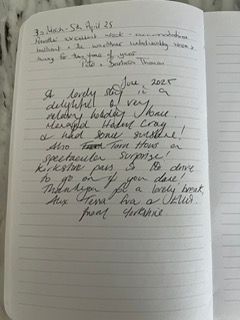 30 March - 5th April 25
Another excellent week - accommodation
brilliant & the weather unbelievably warm &
sunny for this time of year
Pete & Barbara Thomas
June, 2025
A lovely stay in a
delightful & very
relaxing holiday home.
Managed Helm Crag
& had some sunshine!
Also Tarn Hows a
spectacular surprise!
Kirkstone pass is the drive
to go on if you dare!
Thankyou for a lovely break
Tina Eva &
from Yorkshire